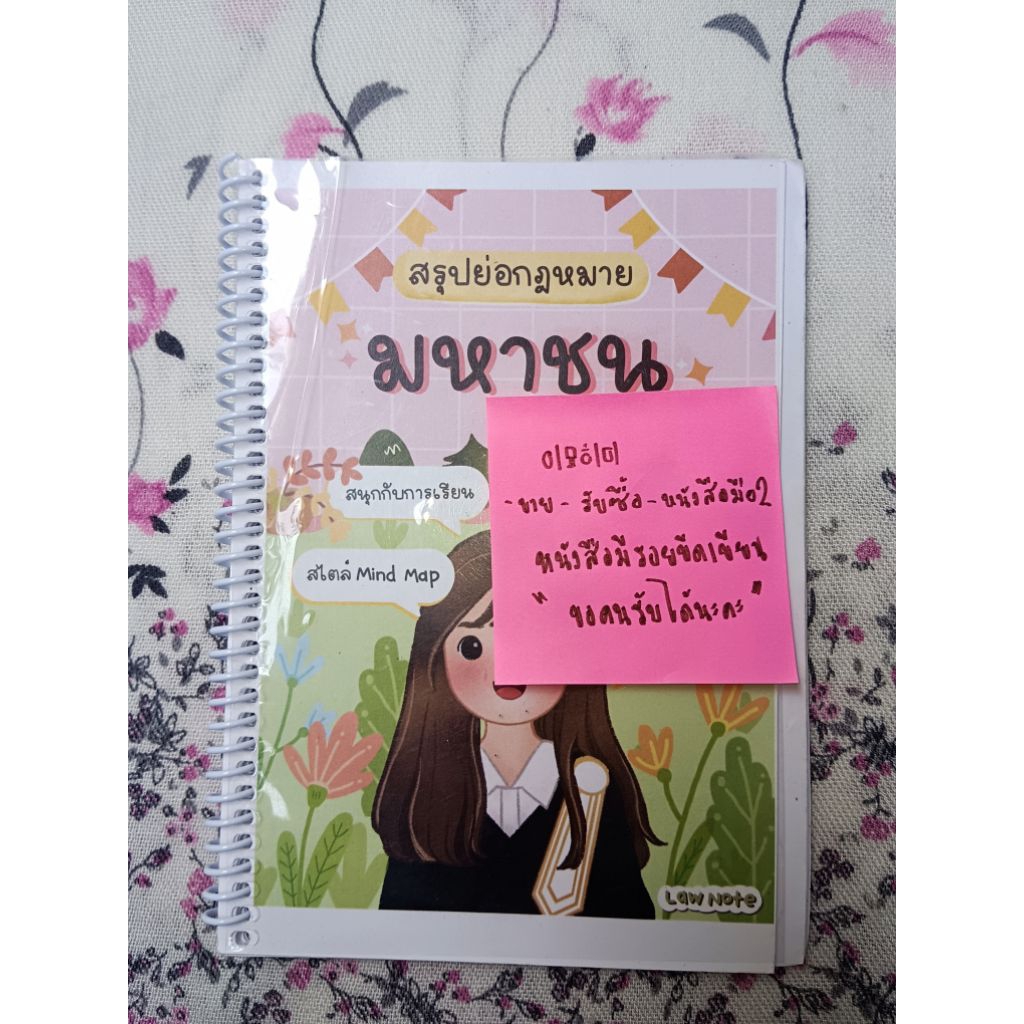 สรุปย่อกฎหมาย
มหาชน
สนุกกับการเรียน
สไตล์ Mind Map
- ขาย - รับซื้อ - หนังสือมือ2
หนังสือมีรอยขีดเขียน
"ขอคนรับได้นะคะ"
Law Note